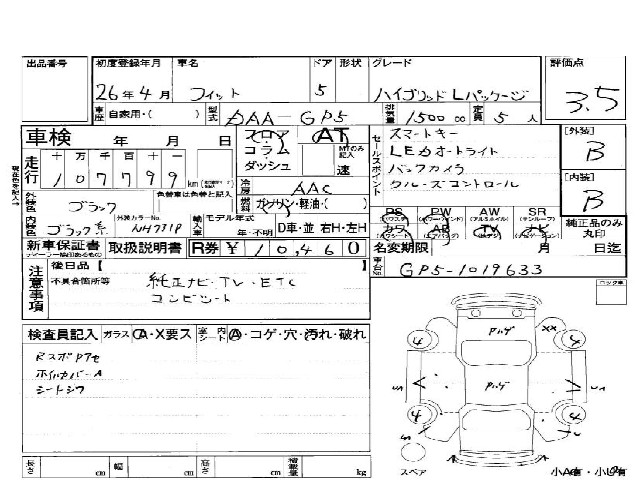 出品番号 初度登録年月 車名 ドア 形状 グレード 評価点
26年4月 フィット 5 ハイブリッド Lパッケージ 3.5
車歴 自家用・( ) 型式 DAA-GP5 排気量 1500 cc 定員 5人
車検 年 月 日 フロア AT セールスポイント スマートキー [外装]
コラム MTのみ記入 LEDオートライト B
走行 十 万 千 百 十 ダッシュ 速 バックカメラ
107799 km 冷房 AAC クルーズコントロール [内装]
外装色 ブラック 色替車は元色と替色に記入 燃料 ガソリン・軽油・( ) B
内装色 ブラック系 外装カラーNo. NH731P 輸入車 モデル年式 年・不明 D車・並 右H・左H
PS PW AW SR
カワ AB TV ナビ 純正品のみ丸印
新車保証書 取扱説明書 R券 ¥10,460 名変期限 月 日迄
注意事項 後日品【 車台No. GP5-1019633
不具合箇所等 純正ナビ・TV・ETC
コンビシート
検査員記入 ガラス A・X要ス 室内シート A・コゲ・穴・汚れ・破れ
RスポPアセ
ホイルカバーA
シートシワ
長さ cm 幅 cm 高さ cm 積載量 kg
スペア 小A有・小U有